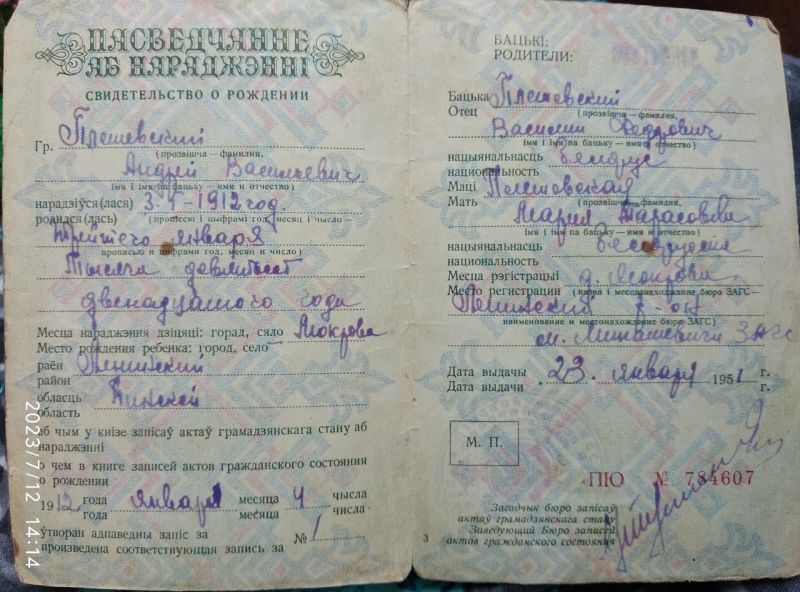 ПАСВЕДЧАННЕ
АБ НАРАДЖЭННІ
СВИДЕТЕЛЬСТВО О РОЖДЕНИИ
Гр. Плешевский
(прозвішча — фамилия,
Андрей Васильевич
імя і імя па бацьку — имя и отчество)
нарадзіўся(лася) 3-I-1912 год
родился(лась) (прописью і цыфрамі год, месяц і число —
Третьего января
прописью и цифрами год, месяц и число)
Тысяча девятьсот
двенадцатого года
Месца нараджэння дзіцяці: горад, сяло Мокрово
Место рождения ребенка: город, село
раён Ленинский
район
обласць Пинской
область
аб чым у кнізе запісаў актаў грамадзянскага стану аб
нараджэнні
о чем в книге записей актов гражданского состояния
о рождении
1912 года января месяца 4 чысла
года месяца числа
ўтворан адпаведны запіс за
произведена соответствующая запись за № 1
БАЦЬКІ:
РОДИТЕЛИ:
Бацька Плешевский
Отец (прозвішча — фамилия,
Василий Федорович
імя і імя па бацьку — имя и отчество)
нацыянальнасць белорус
национальность
Маці Плешевская
Мать (прозвішча — фамилия,
Мария Тарасовна
імя і імя па бацьку — имя и отчество)
нацыянальнасць белоруска
национальность
Месца рэгістрацыі д. Мокрово
Место регистрации (назва і месцазнаходжанне бюро ЗАГС —
Ленинский р-он
наименование и местонахождение бюро ЗАГС)
м. Микашевичи ЗАГС
Дата выдачы 23. января 1951 г.
Дата выдачи г.
М. П.
ПЮ № 784607
Загадчык бюро запісаў
актаў грамадзянскага стану
Заведующий Бюро записей
актов гражданского состояния
3
2023/7/12 14:14